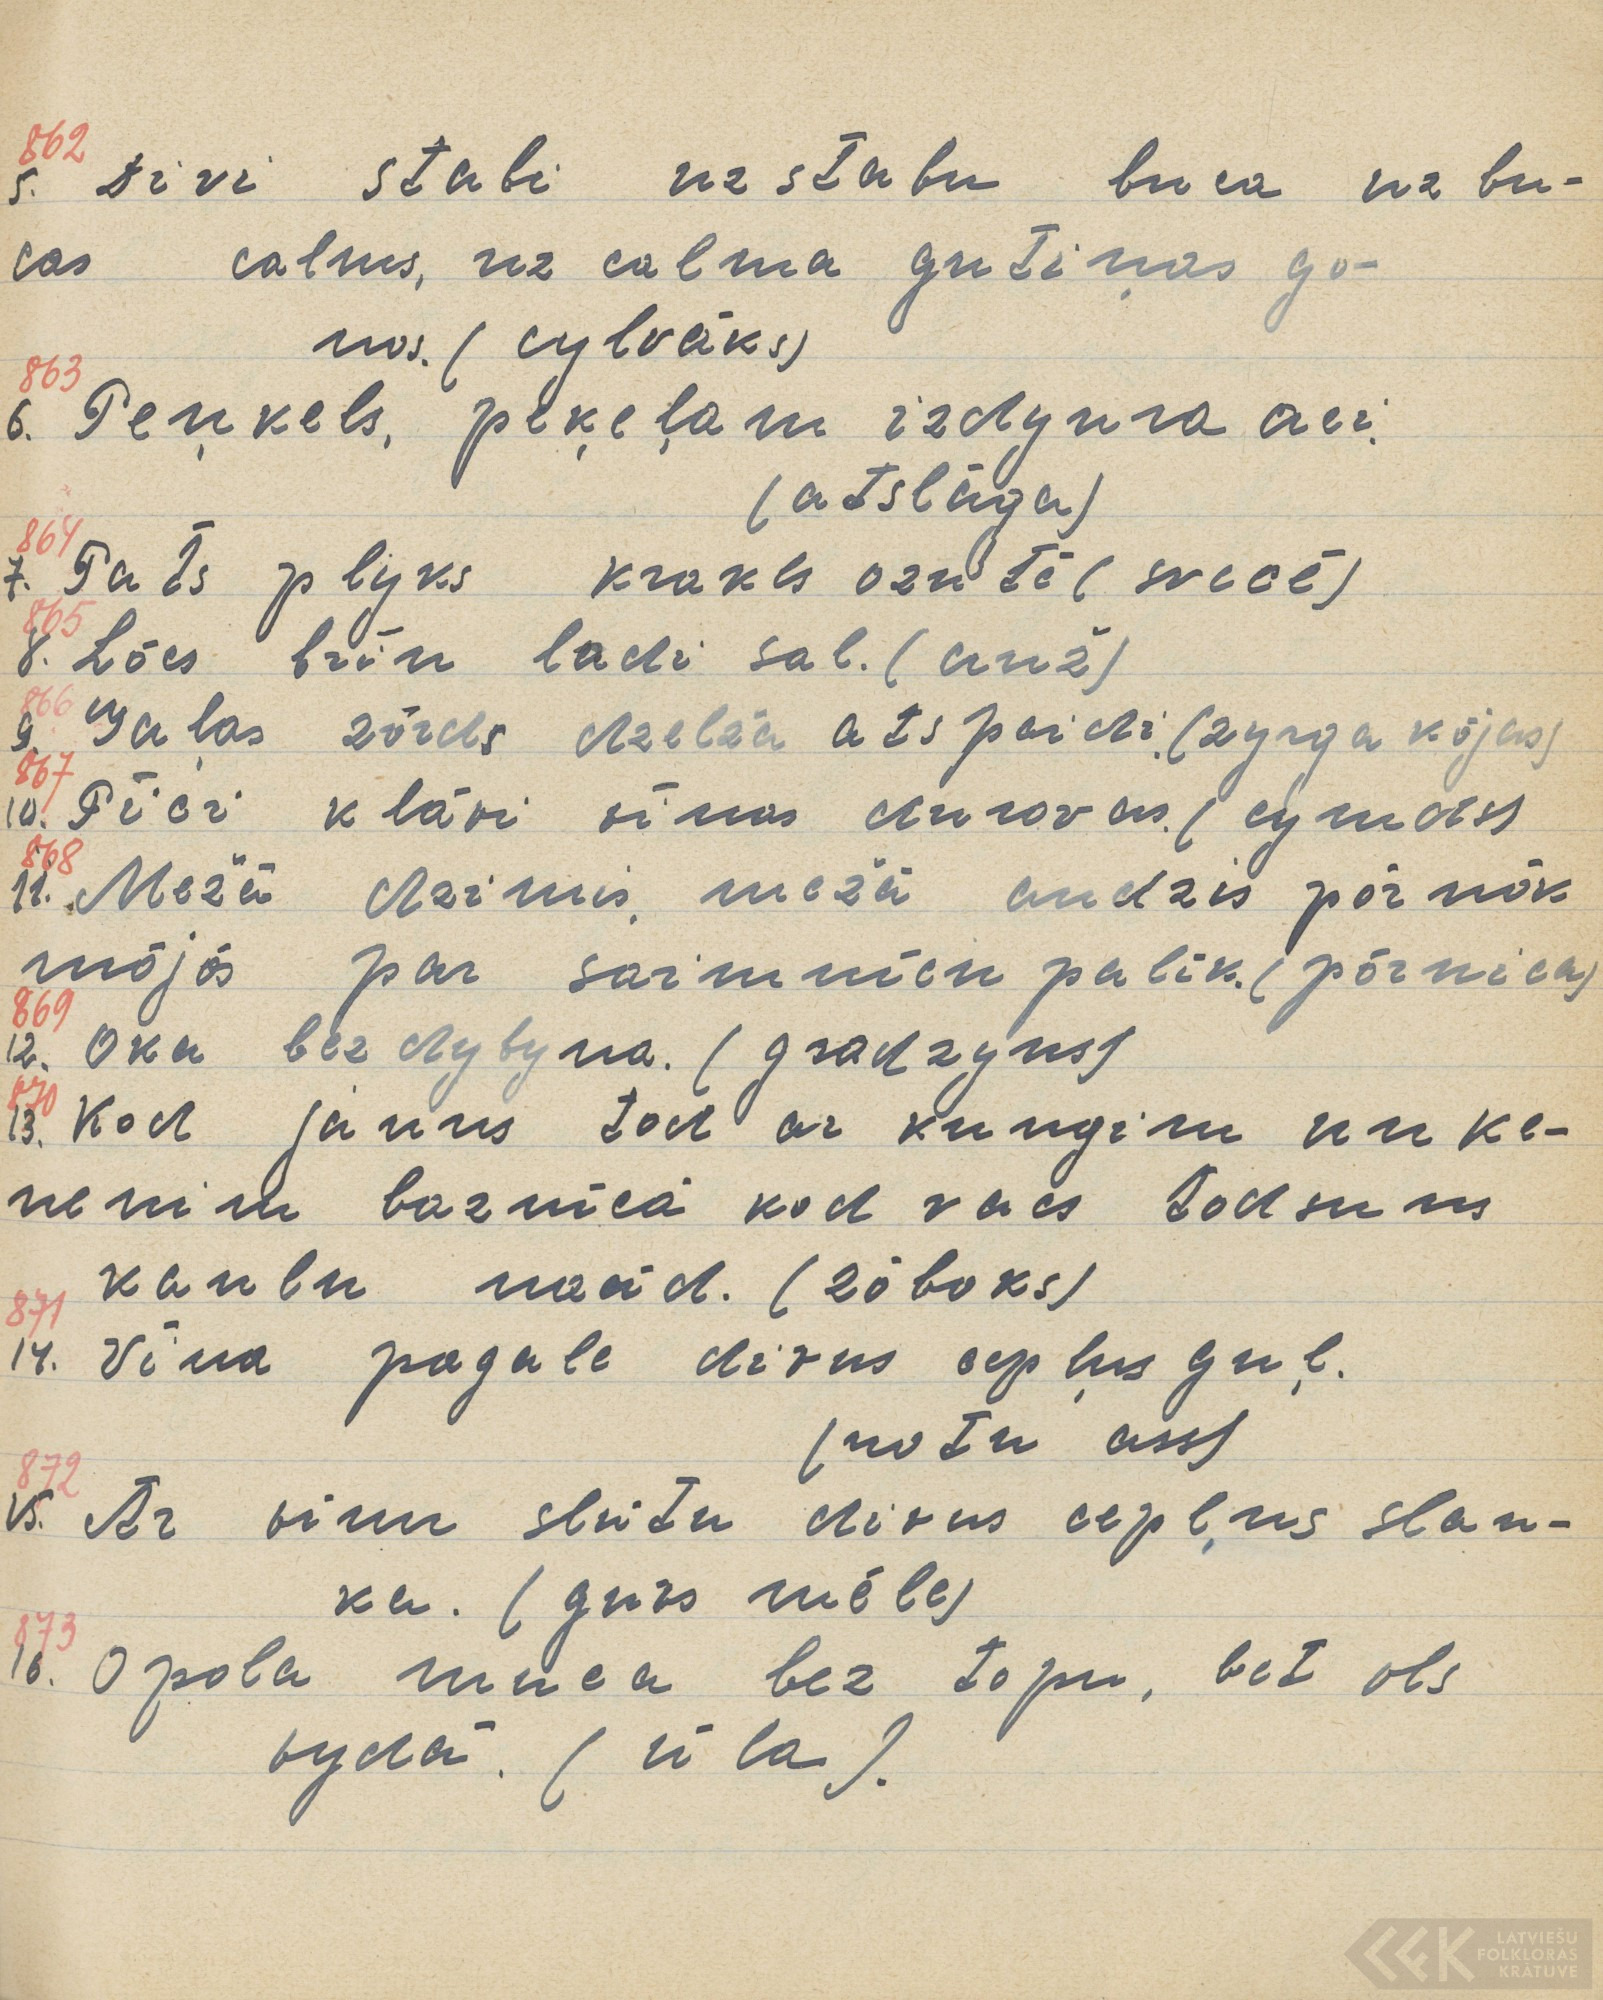 862
5. Divi stabi uz stabu buca uz bu-
cas calms, uz calma gutiņas go-
nos. (cylvāks)
863
6. Peņkels, peķeļam izdyura aci.
(atslāga)
864
7. Pats plyks krakls ozutē (svecē)
865
8. Lōcs brīn ladi sal. (auž)
866
9. Gaļas zōrds dzelža atspaidi. (zyrga kōjas)
867
10. Pīci klāvi vīnas durovas. (cymds)
868
11. Mežā dzimis, mežā audzis pōrnōk
mōjōs par saimnīcu palīk. (pōrnica)
869
12. Oka bez dybyna. (gradzyns)
870
13. Kod jauns tod ar kungim un ke-
nenim baznīcā kod vacs tod suns
kaulu naād. (zōboks)
871
14. Vīna pagale divus cepļus guļ.
(rotu ass)
872
15. Ar vinu slūtu divus cepļus slau-
ka. (guvs mēle)
873
16. Opola muca bez topu, bet ols
vydā. (ūla).
LATVIEŠU
FOLKLORAS
KRĀTUVE